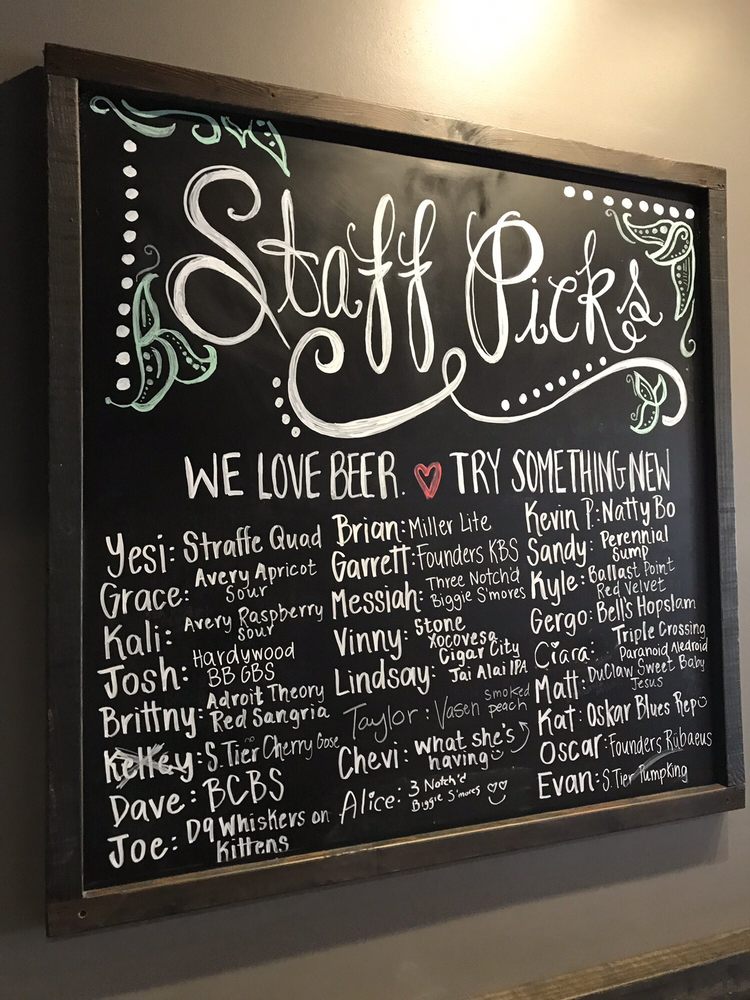 Staff Picks
WE LOVE BEER. ♥ TRY SOMETHING NEW
Yesi: Straffe Quad
Grace: Avery Apricot
Sour
Kali: Avery Raspberry
Sour
Josh: Hardywood
BB GBS
Brittny: Adroit Theory
Red Sangria
Kelley: S. Tier Cherry Gose
Dave: BCBS
Joe: D9 Whiskers on
Kittens
Brian: Miller Lite
Garrett: Founders KBS
Messiah: Three Notch'd
Biggie S'mores
Vinny: Stone
Xocovesa
Lindsay: Cigar City
Jai Alai IPA
Taylor: Vasen smoked
peach
Chevi: what she's
having
Alice: 3 Notch'd
Biggie S'mores
Kevin P: Natty Bo
Sandy: Perennial
Sump
Kyle: Ballast Point
Red Velvet
Gergo: Bell's Hopslam
Ciara: Triple Crossing
Paranoid
Matt: DuClaw Sweet Baby
Jesus
Kat: Oskar Blues Rep
Oscar: Founders Rubaeus
Evan: S. Tier Pumpking